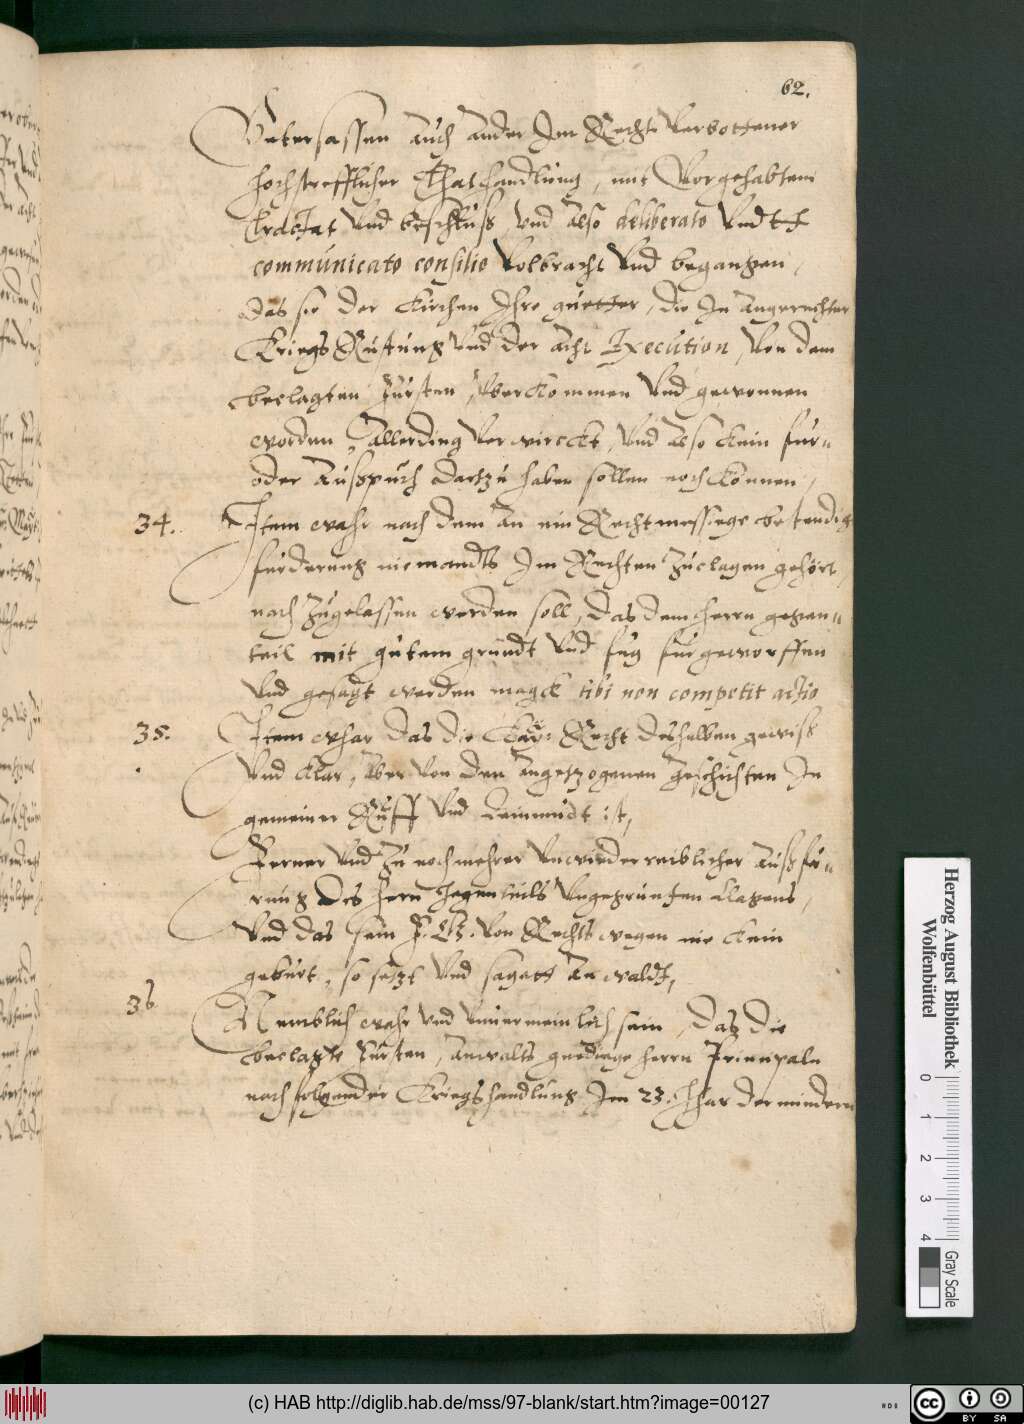 62.
Vatersassen auch ander Im Recht verbottener
hochstrefflicher Thathandlung, mit Vorgehabtem
Tractat Vnd beschluss, vnd also deliberato Vndtt
communicato consilio Volbracht Vnd begangen,
das sie der Kirchen Ihre guetter, die In angerechter
Kriegs Rustung vnd der acht Execution, Von dem
beclagten Fursten, vberkommen Vnd gewonnen
worden, allerding verwirckt, Vnd also kein fur=
oder Ausspruch dartzu haben sollen noch können,
34. Item wahr nach dem an ein Rechtmessiege bestendig
furderung niemandts Im Rechten Zuclagen gehört,
noch Zugelassen werden soll, das dem herrn gegen=
teil mit gutem grundt vnd fug furgeworffen
vnd gesagt werden magck tibi non competit actio
35. Item whar das die Kay: Recht deshalben gewiss
Vnd klar, Aber von den angetzogenen geschichten In
gemeiner Ruff vnd Leimmudt ist,
Ferner Vnd Zu noch mehrer vnwiderreiblicher Aussfu=
rung des hern gegenteils Vngegrunten clagens,
Vnd das sein F. G. Von Rechts wegen nie kein
geburt, so setzt Vnd sagett Anwaldt,
36. Nemblich wahr vnd vnuerneinlich sein, das die
beclagte Fursten, anwalts gnedige herrn Principaln
nach folgender Kriegshandlung Im 23. Jhar der mindern
Herzog August Bibliothek
Wolfenbüttel
0 1 2 3 4
Gray Scale
(c) HAB http://diglib.hab.de/mss/97-blank/start.htm?image=00127
cc BY SA